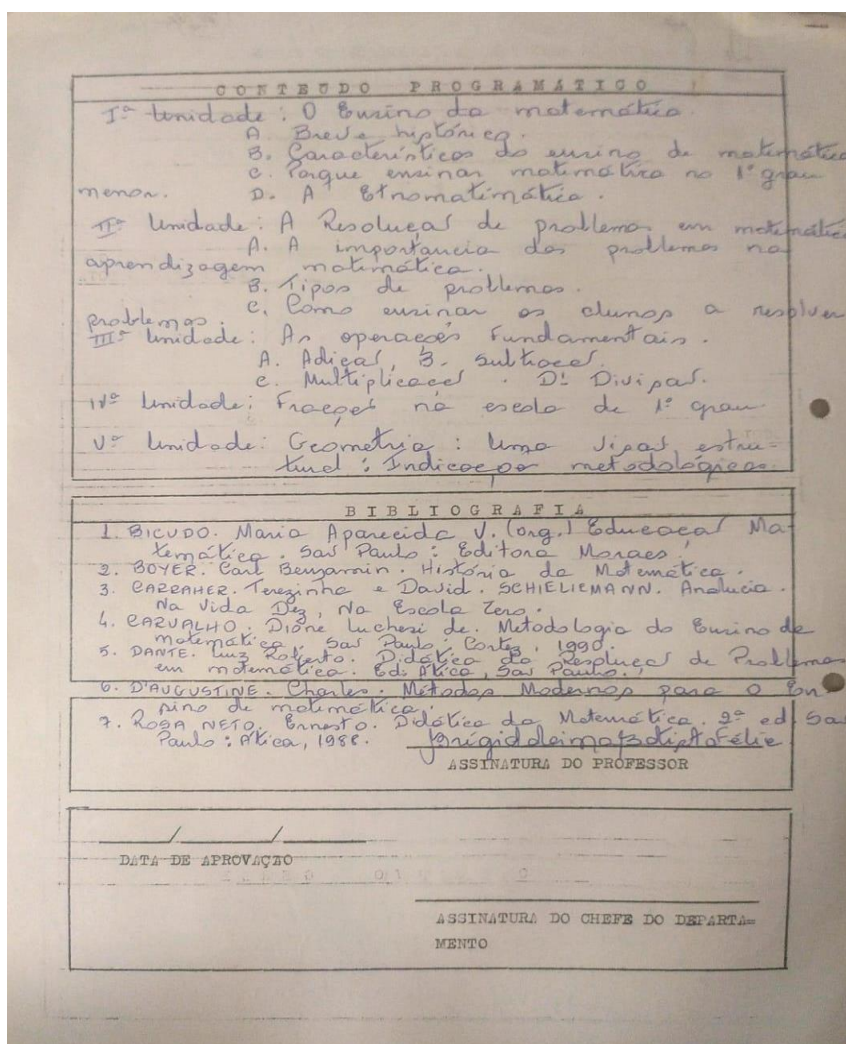 CONTEÚDO PROGRAMÁTICO
Iª Unidade: O Ensino da matemática.
A. Breve histórico.
B. Características do ensino de matemática
C. Porque ensinar matemática no 1º grau
menor. D. A Etnomatimática.
IIª Unidade: A Resolução de problemas em matemática
A. A importancia dos problemas na
aprendizagem matimática.
B. Tipos de problemas.
C. Como ensinar os alunos a resolver
problemas.
IIIª Unidade: As operações Fundamentais.
A. Adição, B. Subtração.
C. Multiplicação. D. Divisão.
IVª Unidade: Frações na escola de 1º grau.
Vª Unidade: Geometria: Uma visão estru-
tural: Indicações metodológicas.
BIBLIOGRAFIA
1. BICUDO. Maria Aparecida V. (org.) Educação Ma-
temática. São Paulo: Editora Moraes.
2. BOYER. Carl Benjamin. História da Matemática.
3. CARRAHER. Terezinha e David. SCHIELIEMANN. Analucia.
Na Vida Dez, Na Escola Zero.
4. CARVALHO. Dione Luchesi de. Metodologia do Ensino de
matemática. São Paulo: Cortez, 1990.
5. DANTE. Luiz Roberto. Didática da Resolução de Problemas
em matemática. Ed. Ática, São Paulo.
6. D'AUGUSTINE. Charles. Métodos Modernos para o En-
sino de matemática.
7. ROSA NETO. Ernesto. Didática da Matemática. 2ª ed. São
Paulo: Ática, 1988.
ASSINATURA DO PROFESSOR
DATA DE APROVAÇÃO
ASSINATURA DO CHEFE DO DEPARTA=
MENTO